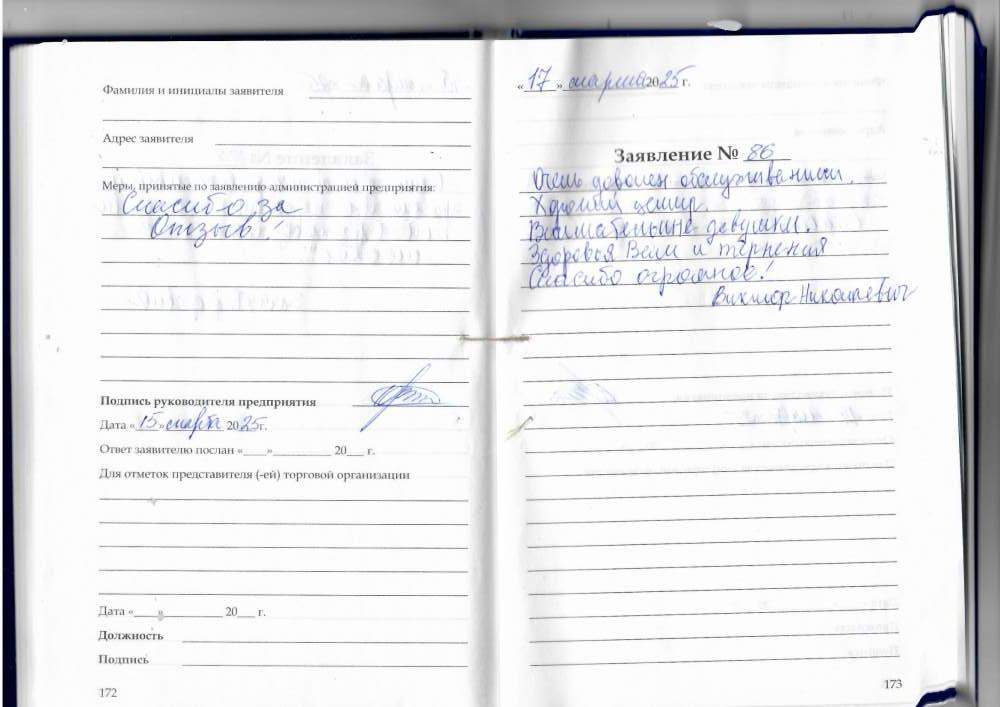 Фамилия и инициалы заявителя
Адрес заявителя
Меры, принятые по заявлению администрацией предприятия:
Спасибо за
Отзыв!
Подпись руководителя предприятия
Дата «15» марта 2025г.
Ответ заявителю послан «____»__________ 20___ г.
Для отметок представителя (-ей) торговой организации
Дата «____»__________ 20___ г.
Должность
Подпись
172
«17» марта 2025г.
Заявление № 86
Очень доволен обслуживанием.
Хороший
Внимательные девушки.
Здоровья Вам и терпения
Спасибо огромное!
Виктор Николаевич
173